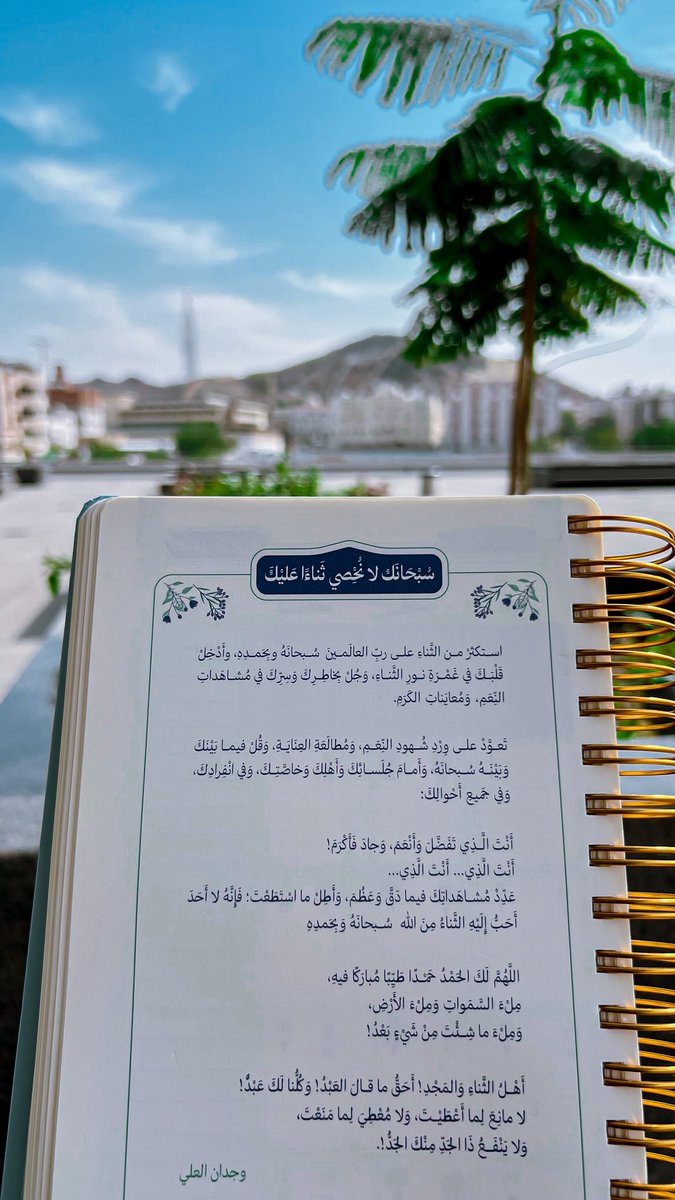 سُبْحَانَك لا نُحْصِي ثَناءًا عَليْكَ
استكثرْ من الثَّناءِ على ربِّ العالَمينَ سُبحانَهُ وبِحَمدِهِ، وأَدْخِلْ
قَلْبَكَ في غَمْرَةِ نورِ الثَّناءِ، وَجُلْ بِخاطِرِكَ وَسِرّكَ في مُشاهَداتِ
النِّعَمِ، وَمُعايَناتِ الكَرَمِ.
تَعوَّدْ على وِرْدِ شُهودِ النِّعَمِ، وَمُطالَعَةِ العِنَايَةِ، وَقُلْ فيما بَيْنَكَ
وَبَيْنَهُ سُبحانَهُ، وَأَمامَ جُلَسائِكَ وَأَهْلِكَ وَخاصَّتِكَ، وَفي انْفِرادِكَ،
وَفي جَميعِ أَحْوالِكَ:
أَنْتَ الَّذِي تَفَضَّلَ وَأَنْعَمَ، وَجادَ فَأَكْرَمَ!
أَنْتَ الَّذِي... أَنْتَ الَّذِي...
عَدِّدْ مُشاهَداتِكَ فيما دَقَّ وَعَظُمَ، وَأَطِلْ ما اسْتَطَعْتَ؛ فَإِنَّهُ لا أَحَدَ
أَحَبُّ إِلَيْهِ الثَّناءُ مِنَ الله سُبحانَهُ وَبِحَمدِهِ
اللَّهُمَّ لَكَ الحَمْدُ حَمْدًا طَيِّبًا مُبارَكًا فيهِ،
مِلْءَ السَّمَواتِ وَمِلْءَ الأَرْضِ،
وَمِلْءَ ما شِئْتَ مِنْ شَيْءٍ بَعْدُ!
أَهْلُ الثَّناءِ وَالمَجْدِ! أَحَقُّ ما قالَ العَبْدُ! وَكُلُّنا لَكَ عَبْدٌ!
لا مانِعَ لِما أَعْطَيْتَ، وَلا مُعْطِيَ لِما مَنَعْتَ،
وَلا يَنْفَعُ ذَا الجَدِّ مِنْكَ الجَدُّ!.
وجدان العلي